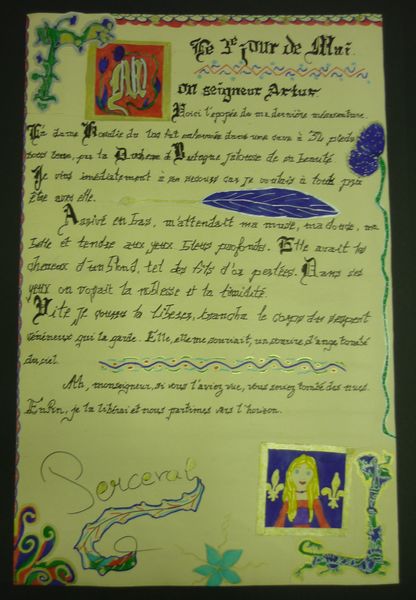 Le 1er jour de Mai.
Mon seigneur Artur
Voici l'épopée de ma dernière mésaventure.
La dame Rosalie du lac fut enfermée dans une cave à 32 pieds
sous terre, par la Duchesse de Bretagne jalouse de sa beauté.
Je vins immédiatement à son secours car je voulais à tout prix
être avec elle.
Arrivé en bas, m'attendait ma muse, ma douce, ma
belle et tendre aux yeux bleus profonds. Elle avait les
cheveux d'un blond, tel des fils d'or perlées. Dans ses
yeux on voyait la noblesse et la timidité.
Vite je courru la libérer, trancha le corps du serpent
vénéneux qui la garde. Elle, elle me souriait, un sourire d'ange tombé
du ciel.
Ah, monseigneur, si vous l'aviez vue, vous seriez tombé des nues.
Enfin, je la libérai et nous partîmes vers l'horizon.
Perceval